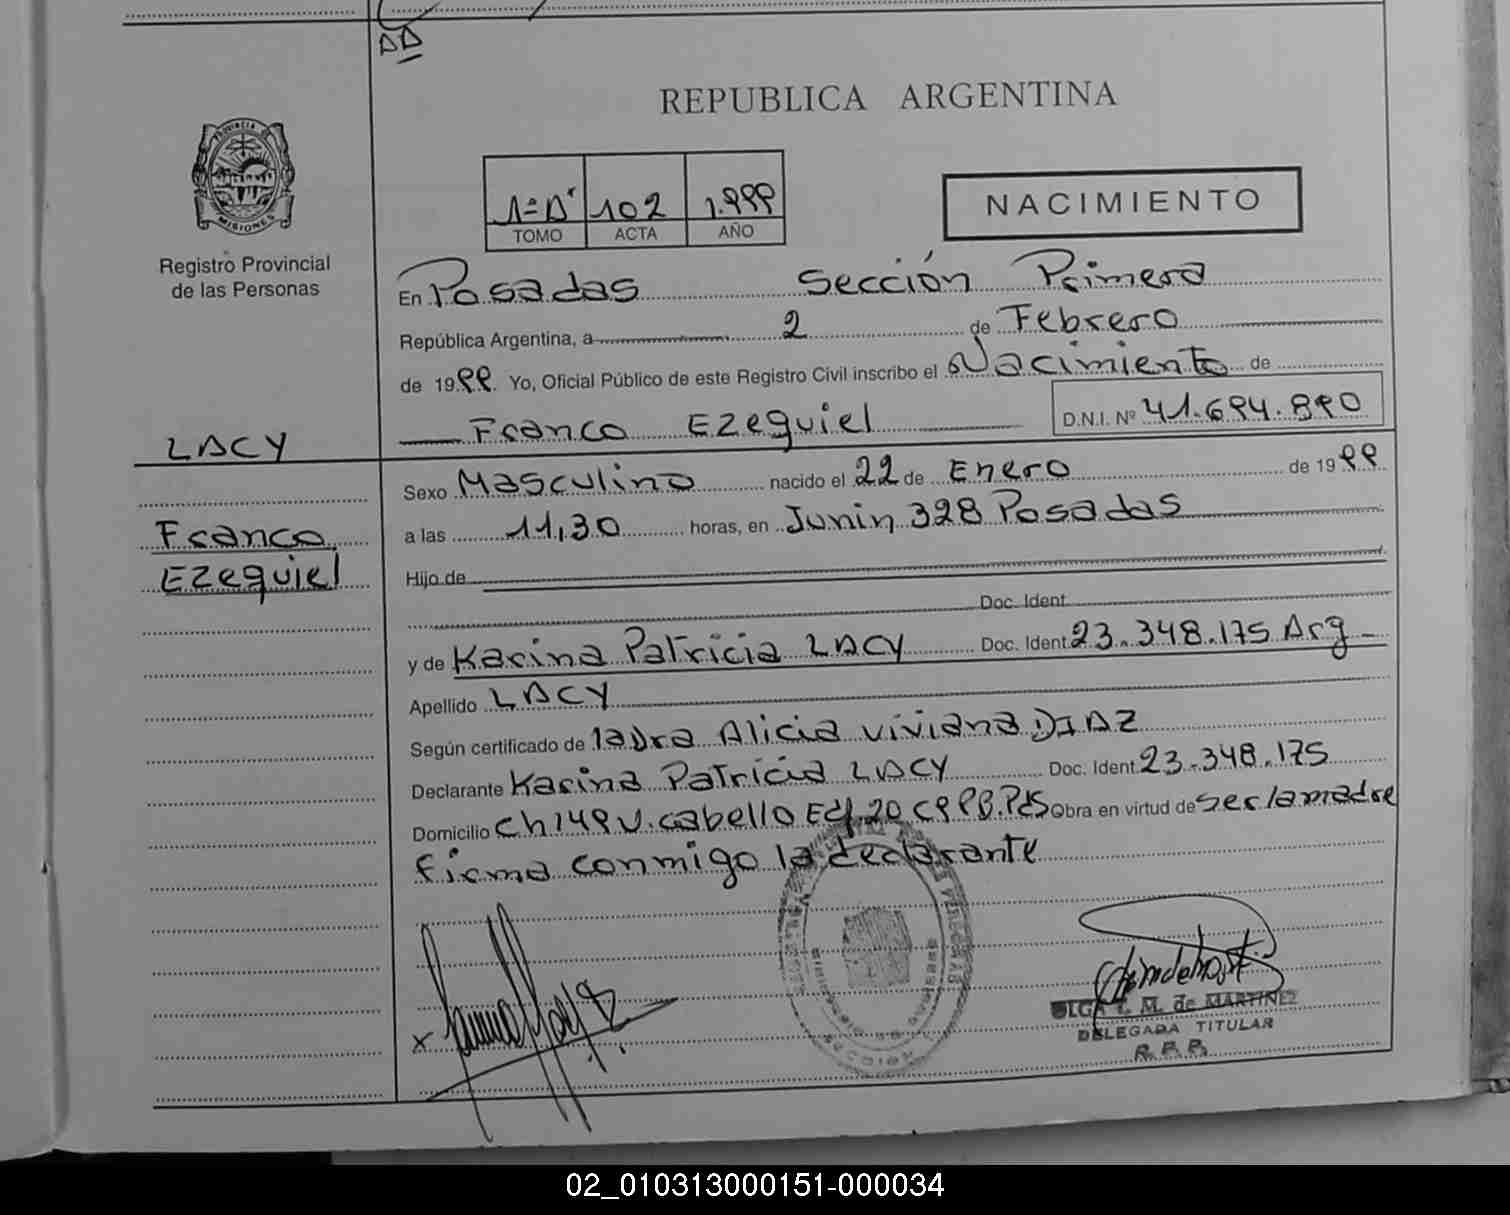 REPUBLICA ARGENTINA
PROVINCIA DE
MISIONES
Registro Provincial
de las Personas
1=A 102 1.999
TOMO ACTA AÑO
NACIMIENTO
En Posadas Sección Primera
República Argentina, a 2 de Febrero
de 1999. Yo, Oficial Público de este Registro Civil inscribo el Nacimiento de
Franco Ezequiel D.N.I. Nº 41.694.890
LACY
Franco
Ezequiel
Sexo Masculino nacido el 22 de Enero de 1999
a las 11,30 horas, en Junin 328 Posadas
Hijo de
Doc. Ident.
y de Karina Patricia LACY Doc. Ident. 23.348.175 Arg
Apellido LACY
Según certificado de la Dra Alicia Viviana DIAZ
Declarante Karina Patricia LACY Doc. Ident. 23.348.175
Domicilio Ch 149 V. Cabello Ed. 20 C9 PB. Pds Obra en virtud de ser la madre
firma conmigo la declarante
x
OLGA M. de MARTINEZ
DELEGADA TITULAR
R. P. P.
02_010313000151-000034